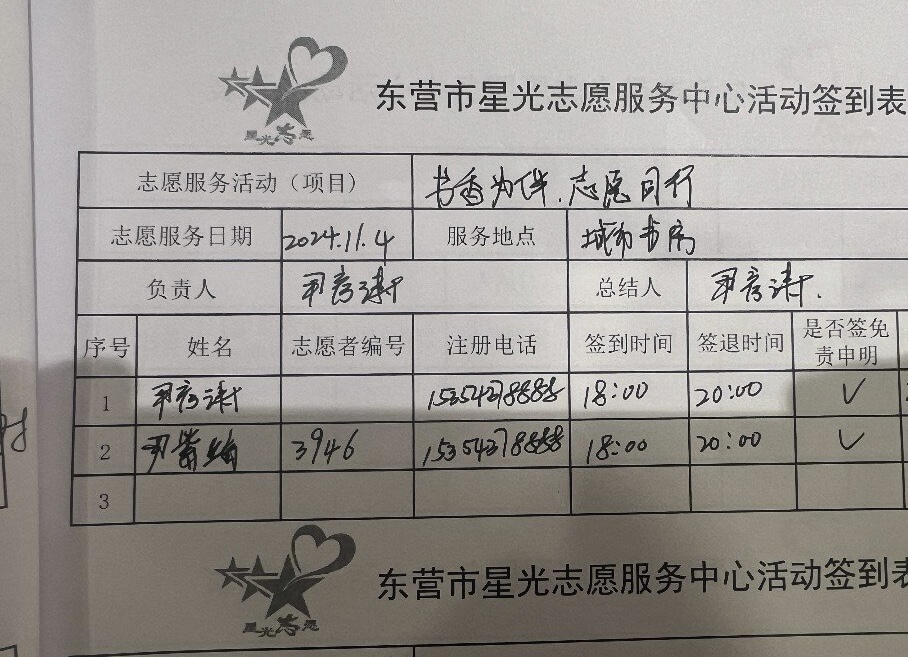 星光志愿
东营市星光志愿服务中心活动签到表
志愿服务活动（项目） 书香为伴.志愿同行
志愿服务日期 2024.11.4 服务地点 城市书房
负责人 总结人
序号 姓名 志愿者编号 注册电话 签到时间 签退时间 是否签免责申明
1 15354278888 18:00 20:00 ✓
2 3946 15354278888 18:00 20:00 ✓
3
星光志愿
东营市星光志愿服务中心活动签到表